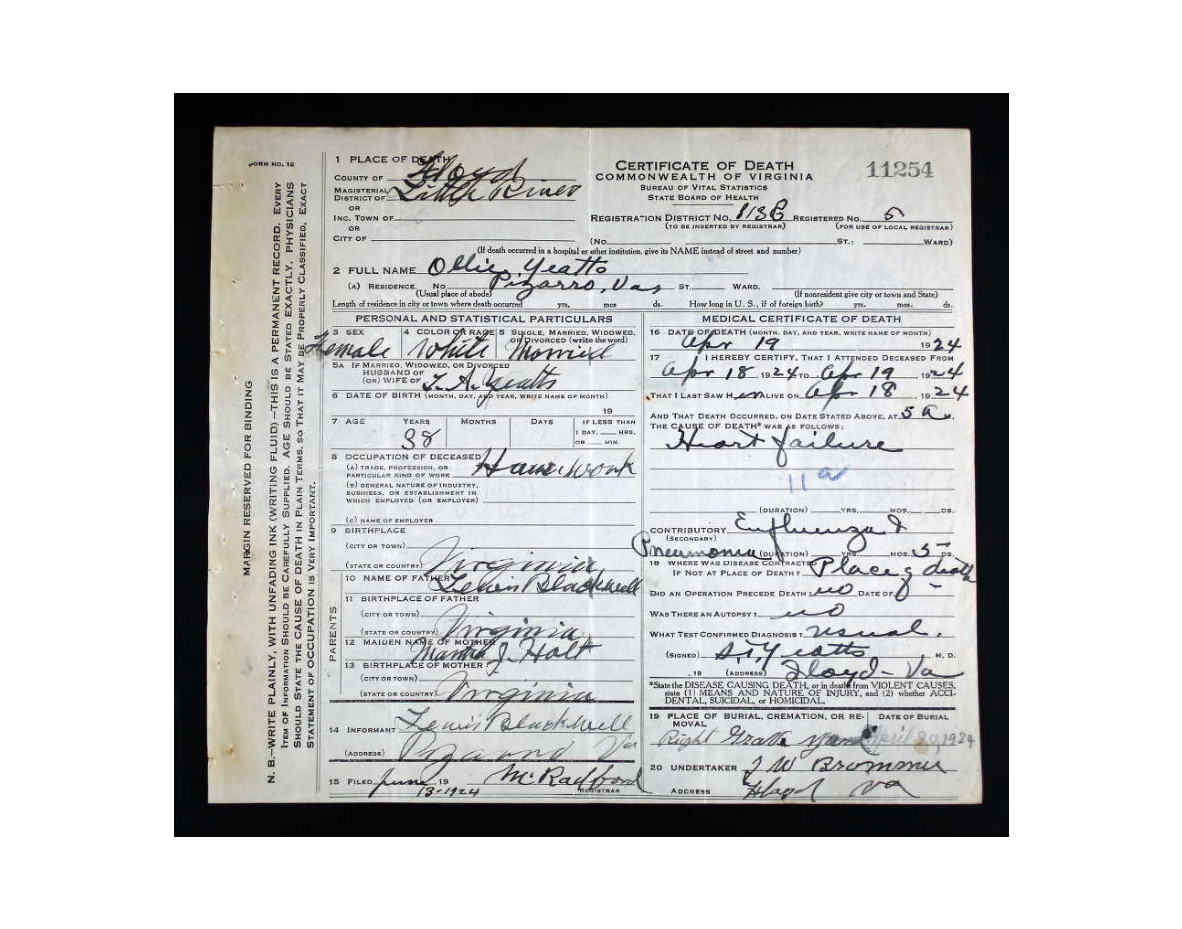 FORM NO. 12
MARGIN RESERVED FOR BINDING
N. B.—WRITE PLAINLY, WITH UNFADING INK (WRITING FLUID)—THIS IS A PERMANENT RECORD. EVERY
ITEM OF INFORMATION SHOULD BE CAREFULLY SUPPLIED. AGE SHOULD BE STATED EXACTLY. PHYSICIANS
SHOULD STATE THE CAUSE OF DEATH IN PLAIN TERMS, SO THAT IT MAY BE PROPERLY CLASSIFIED. EXACT
STATEMENT OF OCCUPATION IS VERY IMPORTANT.
1 PLACE OF DEATH
COUNTY OF Floyd
MAGISTERIAL
DISTRICT OF Little River
OR
INC. TOWN OF
OR
CITY OF
CERTIFICATE OF DEATH
COMMONWEALTH OF VIRGINIA
BUREAU OF VITAL STATISTICS
STATE BOARD OF HEALTH
11254
REGISTRATION DISTRICT NO. 113B REGISTERED NO. 5
(TO BE INSERTED BY REGISTRAR) (FOR USE OF LOCAL REGISTRAR)
(NO. ST.; WARD)
(If death occurred in a hospital or other institution, give its NAME instead of street and number)
2 FULL NAME Ollie Yeatts
(A) RESIDENCE. No. Pizarro, Va. ST. WARD.
(Usual place of abode) (If nonresident give city or town and State)
Length of residence in city or town where death occurred yrs. mos ds. How long in U. S., if of foreign birth? yrs. mos. ds.
PERSONAL AND STATISTICAL PARTICULARS
3 SEX 4 COLOR OR RACE 5 SINGLE, MARRIED, WIDOWED,
OR DIVORCED (write the word)
Female White Married
5A IF MARRIED, WIDOWED, OR DIVORCED
HUSBAND OF
(OR) WIFE OF T. A. Yeatts
6 DATE OF BIRTH (MONTH, DAY, AND YEAR, WRITE NAME OF MONTH)
19
7 AGE YEARS MONTHS DAYS IF LESS THAN
1 DAY, HRS.
OR MIN.
38
8 OCCUPATION OF DECEASED
(A) TRADE, PROFESSION, OR
PARTICULAR KIND OF WORK House work
(B) GENERAL NATURE OF INDUSTRY,
BUSINESS, OR ESTABLISHMENT IN
WHICH EMPLOYED (OR EMPLOYER)
(C) NAME OF EMPLOYER
9 BIRTHPLACE
(CITY OR TOWN)
(STATE OR COUNTRY) Virginia
PARENTS
10 NAME OF FATHER Lewis Blackwell
11 BIRTHPLACE OF FATHER
(CITY OR TOWN)
(STATE OR COUNTRY) Virginia
12 MAIDEN NAME OF MOTHER Martha J. Holt
13 BIRTHPLACE OF MOTHER
(CITY OR TOWN)
(STATE OR COUNTRY) Virginia
14 INFORMANT Lewis Blackwell
(ADDRESS) Pizarro Va
15 FILED June 19 McRadford
13-1924 REGISTRAR
MEDICAL CERTIFICATE OF DEATH
16 DATE OF DEATH (MONTH, DAY, AND YEAR, WRITE NAME OF MONTH)
Apr 19 1924
17 I HEREBY CERTIFY, THAT I ATTENDED DECEASED FROM
Apr 18 1924 TO Apr 19 1924
THAT I LAST SAW HER ALIVE ON Apr 18, 1924
AND THAT DEATH OCCURRED, ON DATE STATED ABOVE, AT 5 A M.
THE CAUSE OF DEATH* WAS AS FOLLOWS:
Heart failure
11a
(DURATION) YRS. MOS. DS.
CONTRIBUTORY Enfluenza &
(SECONDARY)
Pneumonia (DURATION) YRS. MOS. 5 DS.
18 WHERE WAS DISEASE CONTRACTED
IF NOT AT PLACE OF DEATH? Place of death
DID AN OPERATION PRECEDE DEATH? no DATE OF
WAS THERE AN AUTOPSY? no
WHAT TEST CONFIRMED DIAGNOSIS? usual.
(SIGNED) S. T. Yeatts M. D.
, 19 (ADDRESS) Floyd - Va
*State the DISEASE CAUSING DEATH, or in death from VIOLENT CAUSES,
state (1) MEANS AND NATURE OF INJURY, and (2) whether ACCI-
DENTAL, SUICIDAL, or HOMICIDAL.
19 PLACE OF BURIAL, CREMATION, OR RE- DATE OF BURIAL
MOVAL
Right Grave yard April 20, 1924
20 UNDERTAKER J W Brommer
ADDRESS Floyd Va